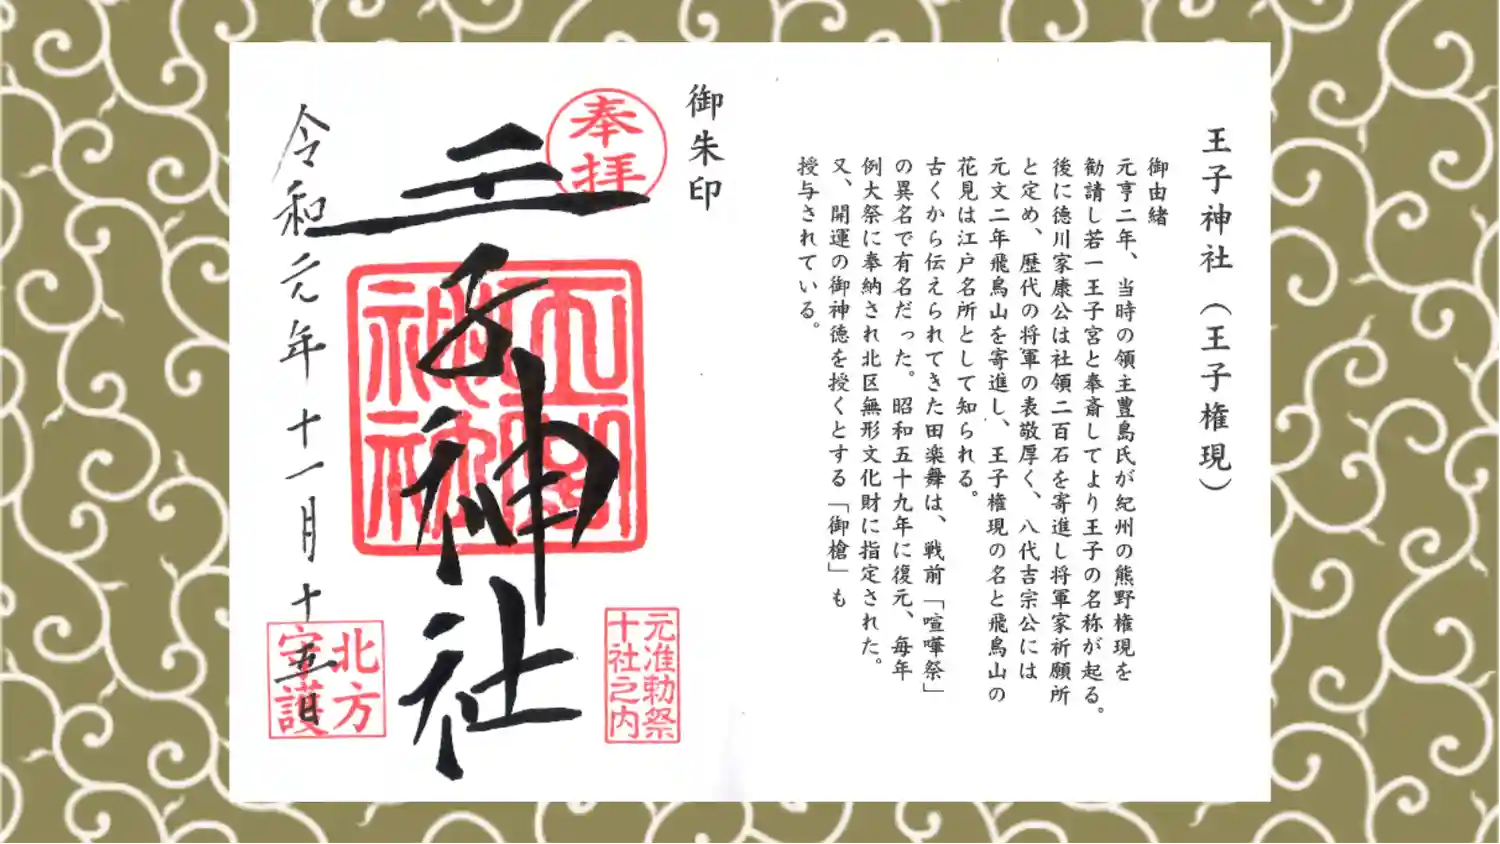 王子神社（王子権現）
御由緒
元亨二年、当時の領主豊島氏が紀州の熊野権現を
勧請し若一王子宮と奉斎してより王子の名称が起る。
後に徳川家康公は社領二百石を寄進し将軍家祈願所
と定め、歴代の将軍の表敬厚く、八代吉宗公には
元文二年飛鳥山を寄進し、王子権現の名と飛鳥山の
花見は江戸名所として知られる。
古くから伝えられてきた田楽舞は、戦前「喧嘩祭」
の異名で有名だった。昭和五十九年に復元、毎年
例大祭に奉納され北区無形文化財に指定された。
又、開運の御神徳を授くとする「御槍」も
授与されている。
御朱印
奉拝
元准勅祭
十社之内
王子神社
王子
神社
北方
守護
令和元年十一月十五日